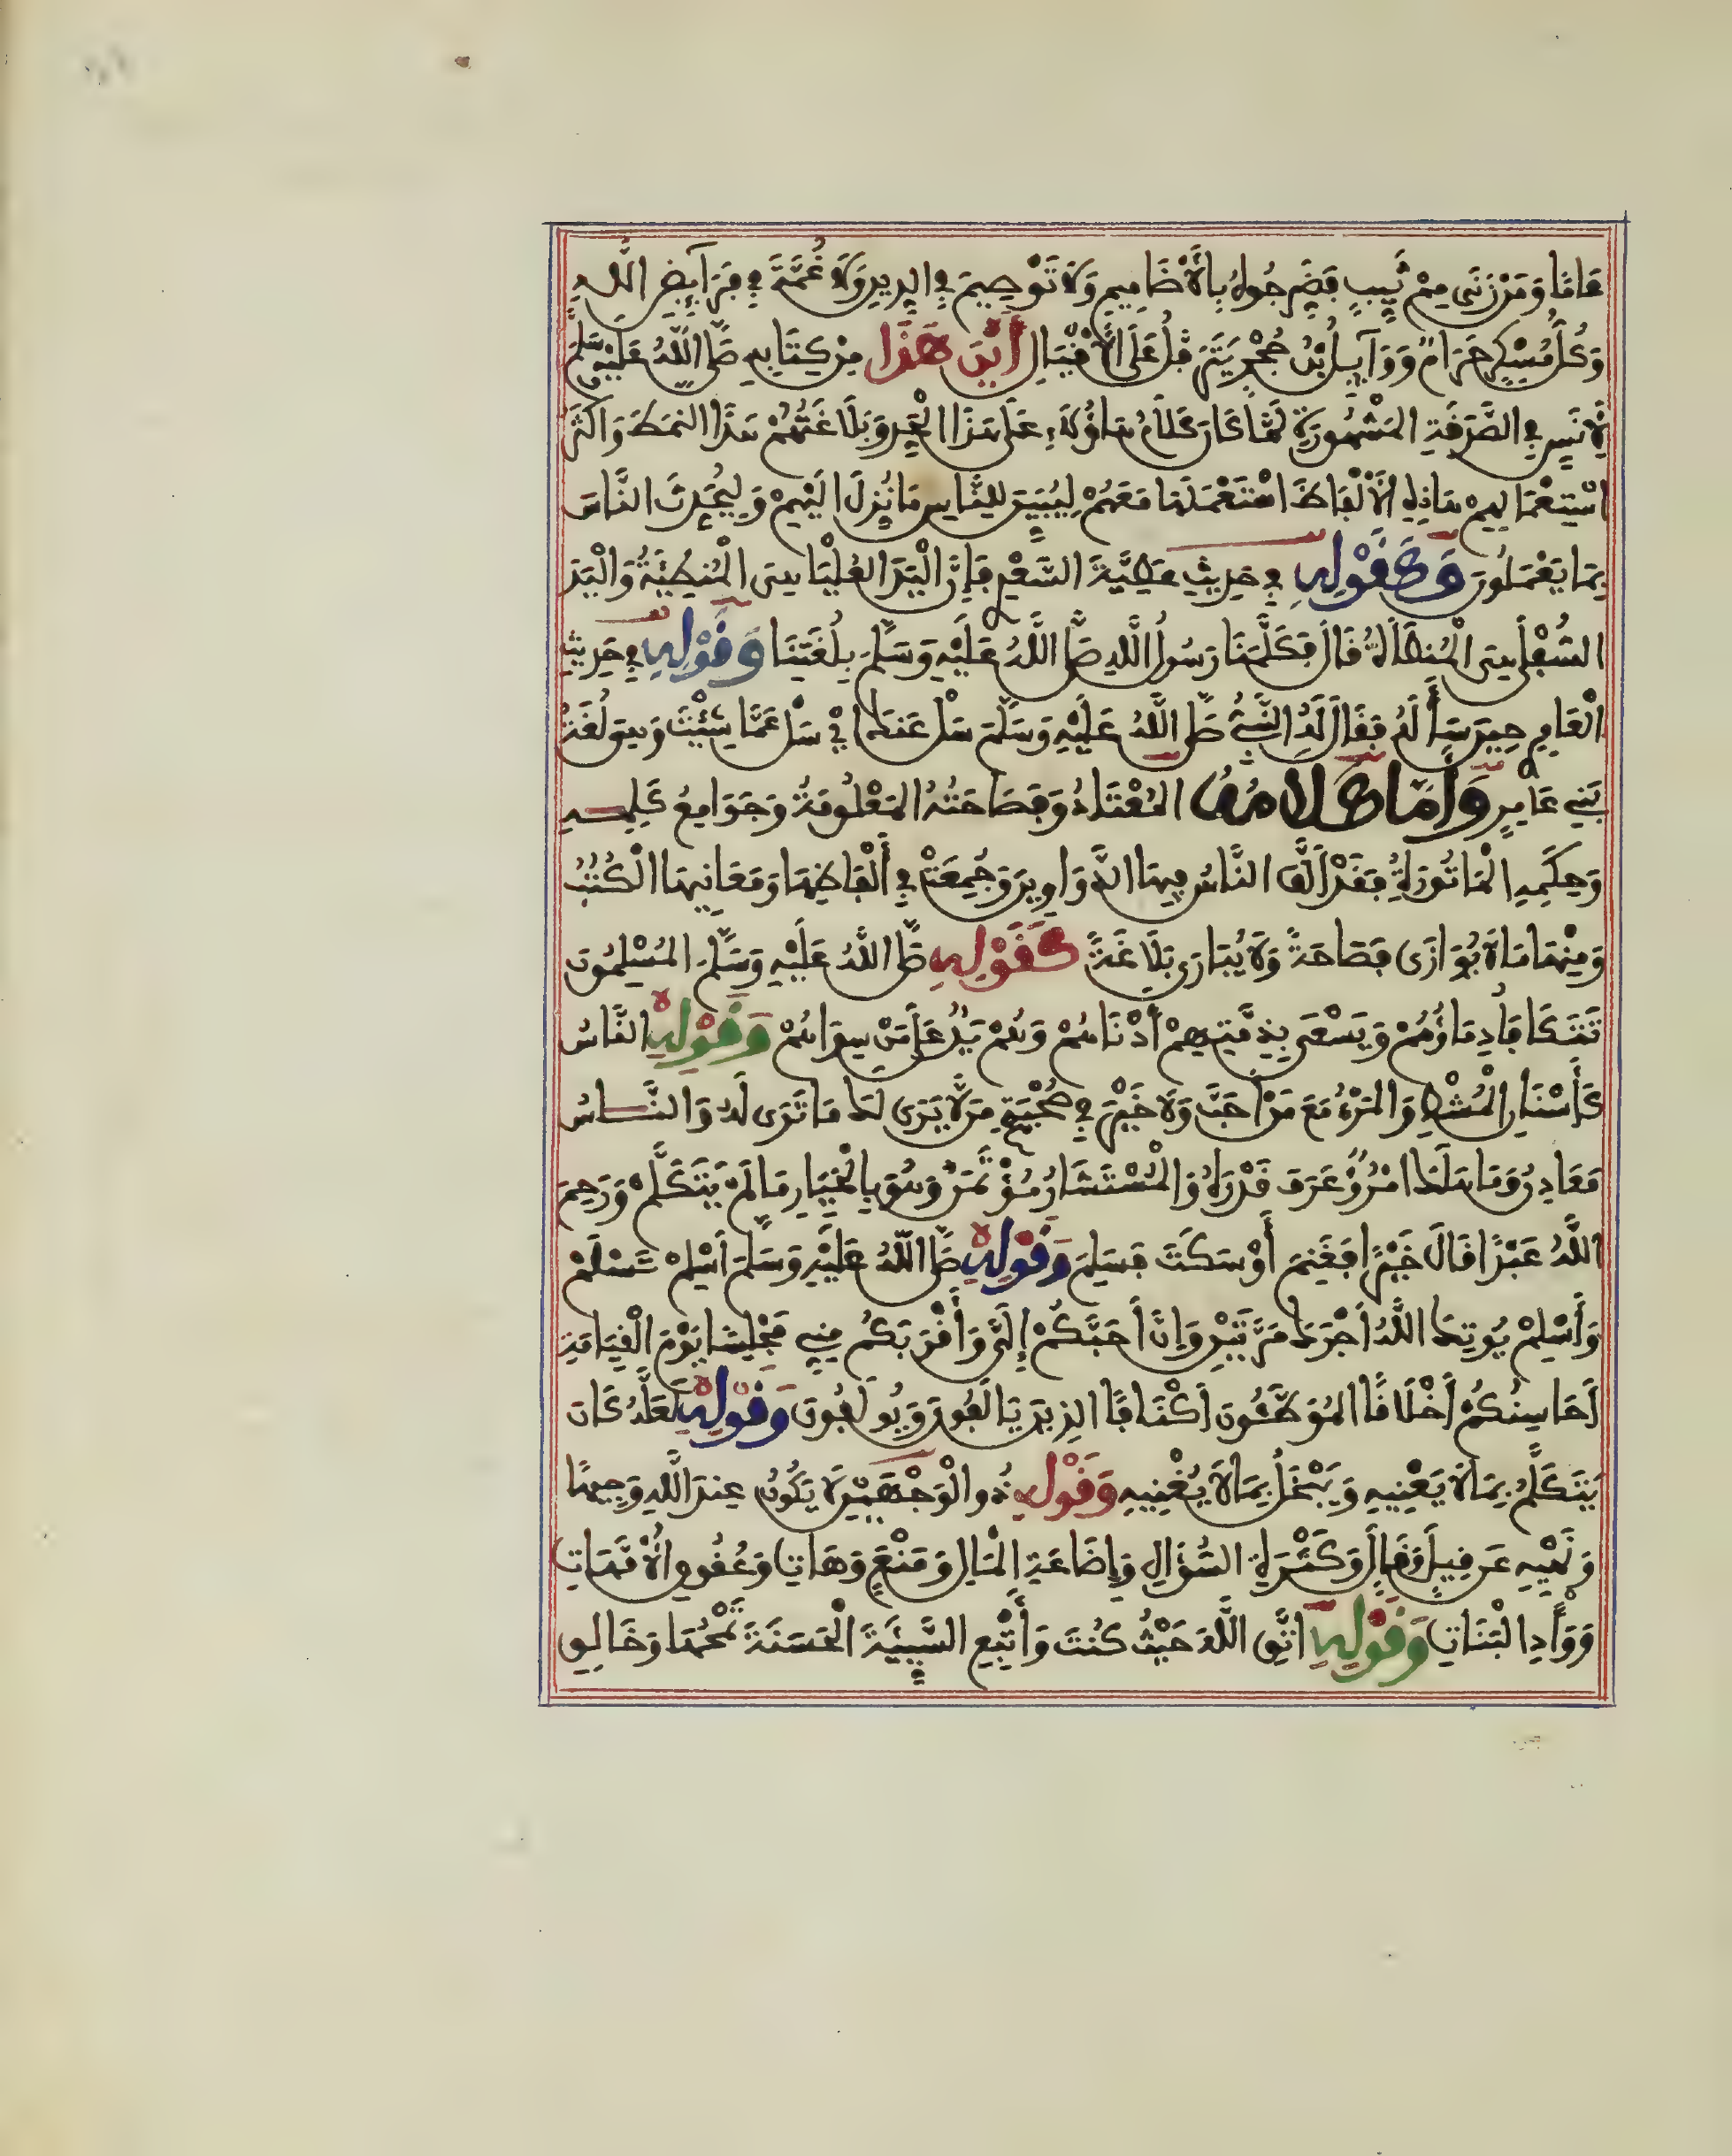 عَامًا وَمَنْ زَنَى مِمْ ثَيِّبٍ فَضَرِّجُوهُ بِالْأَضَامِيمِ وَلَا تَوْصِيمَ فِي الدِّينِ وَلَا غُمَّةَ فِي فَرَآئِضِ اللَّهِ
وَكُلُّ مُسْكِرٍ حَرَامٌ وَوَآئِلُ بْنُ حُجْرٍ يَتَرَفَّلُ عَلَى الْأَقْيَالِ أَيْنَ هَذَا مِنْ كِتَابِهِ صَلَّى اللَّهُ عَلَيْهِ وَسَلَّمَ
لِأَنَسٍ فِي الصَّدَقَةِ الْمَشْهُورَةِ لَمَّا كَانَ كَلَامُ هَاؤُلَاءِ عَلَى هَذَا الْحَدِّ وَبَلَاغَتُهُمْ هَذَا النَّمَطَ وَأَكْثَرُ
اسْتِعْمَالِهِمْ هَاذِهِ الْأَلْفَاظَ اسْتَعْمَلَهَا مَعَهُمْ لِيُبَيِّنَ لِلنَّاسِ مَا نُزِّلَ إِلَيْهِمْ وَلِيُحَدِّثَ النَّاسَ
بِمَا يَعْمَلُونَ وَكَقَوْلِهِ فِي حَدِيثِ عَطِيَّةَ السَّعْدِيِّ فَإِنَّ الْيَدَ الْعُلْيَا هِيَ الْمُنْطِيَةُ وَالْيَدَ
السُّفْلَى هِيَ الْمُنْطَاةُ قَالَ فَكَلَّمَنَا رَسُولُ اللَّهِ صَلَّى اللَّهُ عَلَيْهِ وَسَلَّمَ بِلُغَتِنَا وَقَوْلِهِ فِي حَدِيثِ
الْعَامِرِيِّ حِينَ سَأَلَهُ فَقَالَ لَهُ النَّبِيُّ صَلَّى اللَّهُ عَلَيْهِ وَسَلَّمَ سَلْ عَنْكَ أَيْ سَلْ عَمَّا شِئْتَ وَهِيَ لُغَةُ
بَنِي عَامِرٍ وَأَمَّا كَلَامُهُ الْمُعْتَادُ وَفَصَاحَتُهُ الْمَعْلُومَةُ وَجَوَامِعُ كَلِمِهِ
وَحِكَمِهِ الْمَأْثُورَةُ فَقَدْ أَلَّفَ النَّاسُ فِيهَا الدَّوَاوِينَ وَجُمِعَتْ فِي أَلْفَاظِهَا وَمَعَانِيهَا الْكُتُبُ
وَمِنْهَا مَا لَا يُوَازَى فَصَاحَةً وَلَا يُبَارَى بَلَاغَةً كَقَوْلِهِ صَلَّى اللَّهُ عَلَيْهِ وَسَلَّمَ الْمُسْلِمُونَ
تَتَكَافَأُ دِمَاؤُهُمْ وَيَسْعَى بِذِمَّتِهِمْ أَدْنَاهُمْ وَهُمْ يَدٌ عَلَى مَنْ سِوَاهُمْ وَقَوْلِهِ النَّاسُ
كَأَسْنَانِ الْمُشْطِ وَالْمَرْءُ مَعَ مَنْ أَحَبَّ وَلَا خَيْرَ فِي صُحْبَةِ مَنْ لَا يَرَى لَكَ مَا تَرَى لَهُ وَالنَّاسُ
مَعَادِنُ وَمَا هَلَكَ امْرُؤٌ عَرَفَ قَدْرَهُ وَالْمُسْتَشَارُ مُؤْتَمَنٌ وَهُوَ بِالْخِيَارِ مَا لَمْ يَتَكَلَّمْ وَرَحِمَ
اللَّهُ عَبْدًا قَالَ خَيْرًا فَغَنِمَ أَوْ سَكَتَ فَسَلِمَ وَقَوْلِهِ صَلَّى اللَّهُ عَلَيْهِ وَسَلَّمَ أَسْلِمْ تَسْلَمْ
وَأَسْلِمْ يُوتِكَ اللَّهُ أَجْرَكَ مَرَّتَيْنِ وَإِنَّ أَحَبَّكُمْ إِلَيَّ وَأَقْرَبَكُمْ مِنِّي مَجْلِسًا يَوْمَ الْقِيَامَةِ
أَحَاسِنُكُمْ أَخْلَاقًا الْمُوَطَّئُونَ أَكْنَافًا الَّذِينَ يَأْلَفُونَ وَيُولَفُونَ وَقَوْلِهِ لَعَلَّهُ كَانَ
يَتَكَلَّمُ بِمَا لَا يَعْنِيهِ وَيَبْخَلُ بِمَا لَا يُغْنِيهِ وَقَوْلِهِ ذُو الْوَجْهَيْنِ لَا يَكُونُ عِنْدَ اللَّهِ وَجِيهًا
وَنَهْيِهِ عَنْ قِيلَ وَقَالَ وَكَثْرَةِ السُّؤَالِ وَإِضَاعَةِ الْمَالِ وَمَنْعٍ وَهَاتِ وَعُقُوقِ الْأُمَّهَاتِ
وَوَأْدِ الْبَنَاتِ وَقَوْلِهِ اتَّقِ اللَّهَ حَيْثُ كُنْتَ وَأَتْبِعِ السَّيِّئَةَ الْحَسَنَةَ تَمْحُهَا وَخَالِقِ